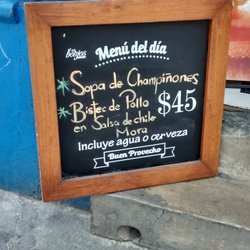 Menú del día
Sopa de Champiñones
Bistec de Pollo $45
en Salsa de chile
Mora
Incluye agua o cerveza
Buen Provecho